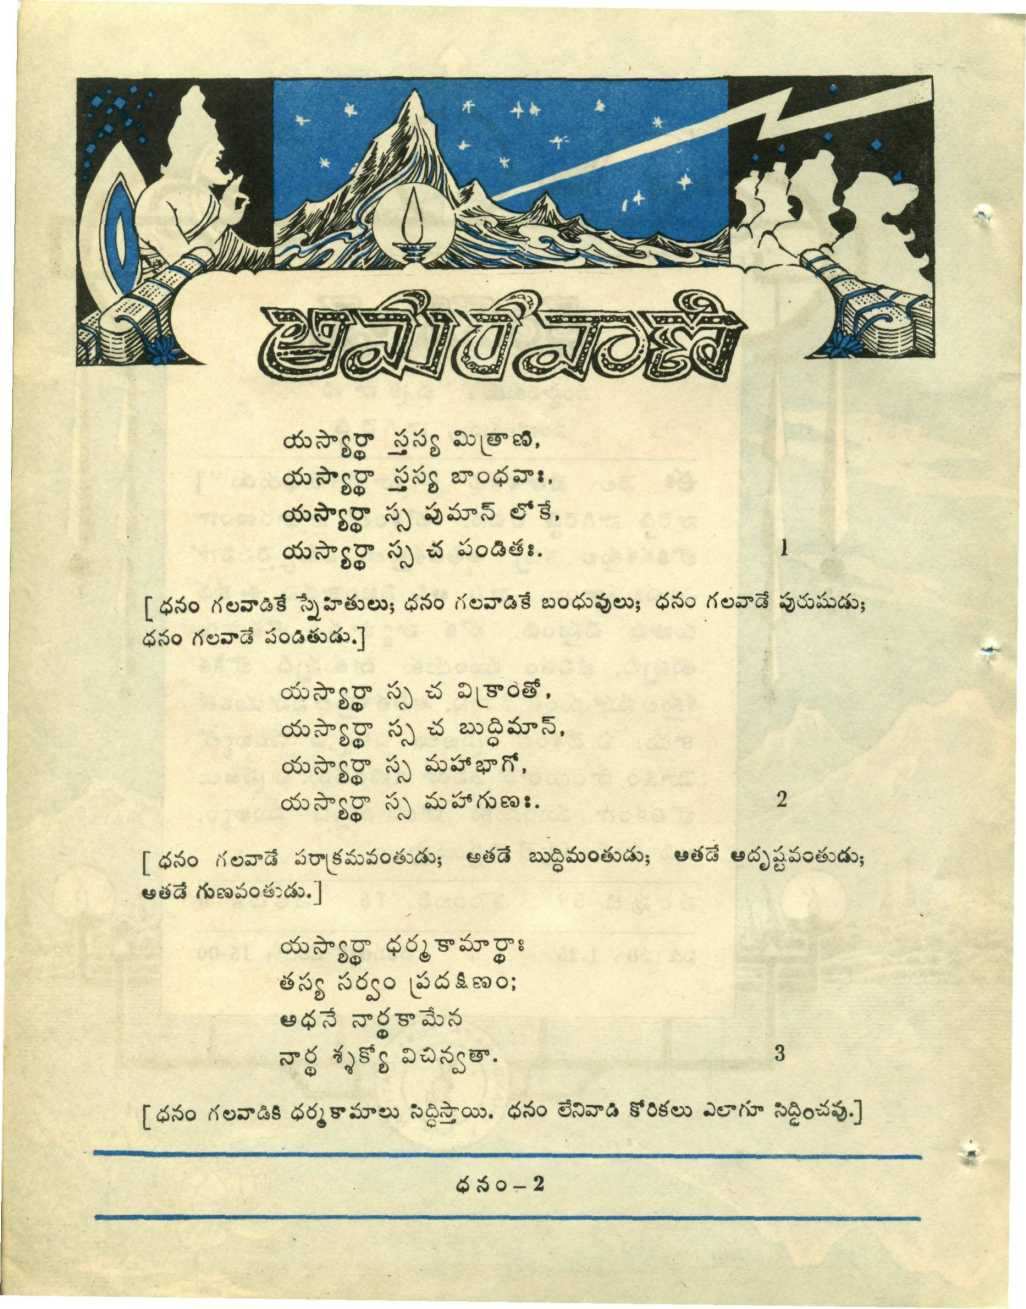 అమరవాణి
యస్యార్థా స్తస్య మిత్రాణి,
యస్యార్థా స్తస్య బాంధవాః,
యస్యార్థా స్స పుమాన్ లోకే,
యస్యార్థా స్స చ పండితః. 1
[ధనం గలవాడికే స్నేహితులు; ధనం గలవాడికే బంధువులు; ధనం గలవాడే పురుషుడు;
ధనం గలవాడే పండితుడు.]
యస్యార్థా స్స చ విక్రాంతో,
యస్యార్థా స్స చ బుద్ధిమాన్,
యస్యార్థా స్స మహాభాగో,
యస్యార్థా స్స మహాగుణః. 2
[ధనం గలవాడే పరాక్రమవంతుడు; అతడే బుద్ధిమంతుడు; అతడే అదృష్టవంతుడు;
అతడే గుణవంతుడు.]
యస్యార్థా ధర్మకామార్థాః
తస్య సర్వం ప్రదక్షిణం;
అధనే నార్థకామేన
నార్థ శ్శక్యో విచిన్వతా. 3
[ధనం గలవాడికి ధర్మకామాలు సిద్ధిస్తాయి. ధనం లేనివాడి కోరికలు ఎలాగూ సిద్ధించవు.]
ధనం - 2